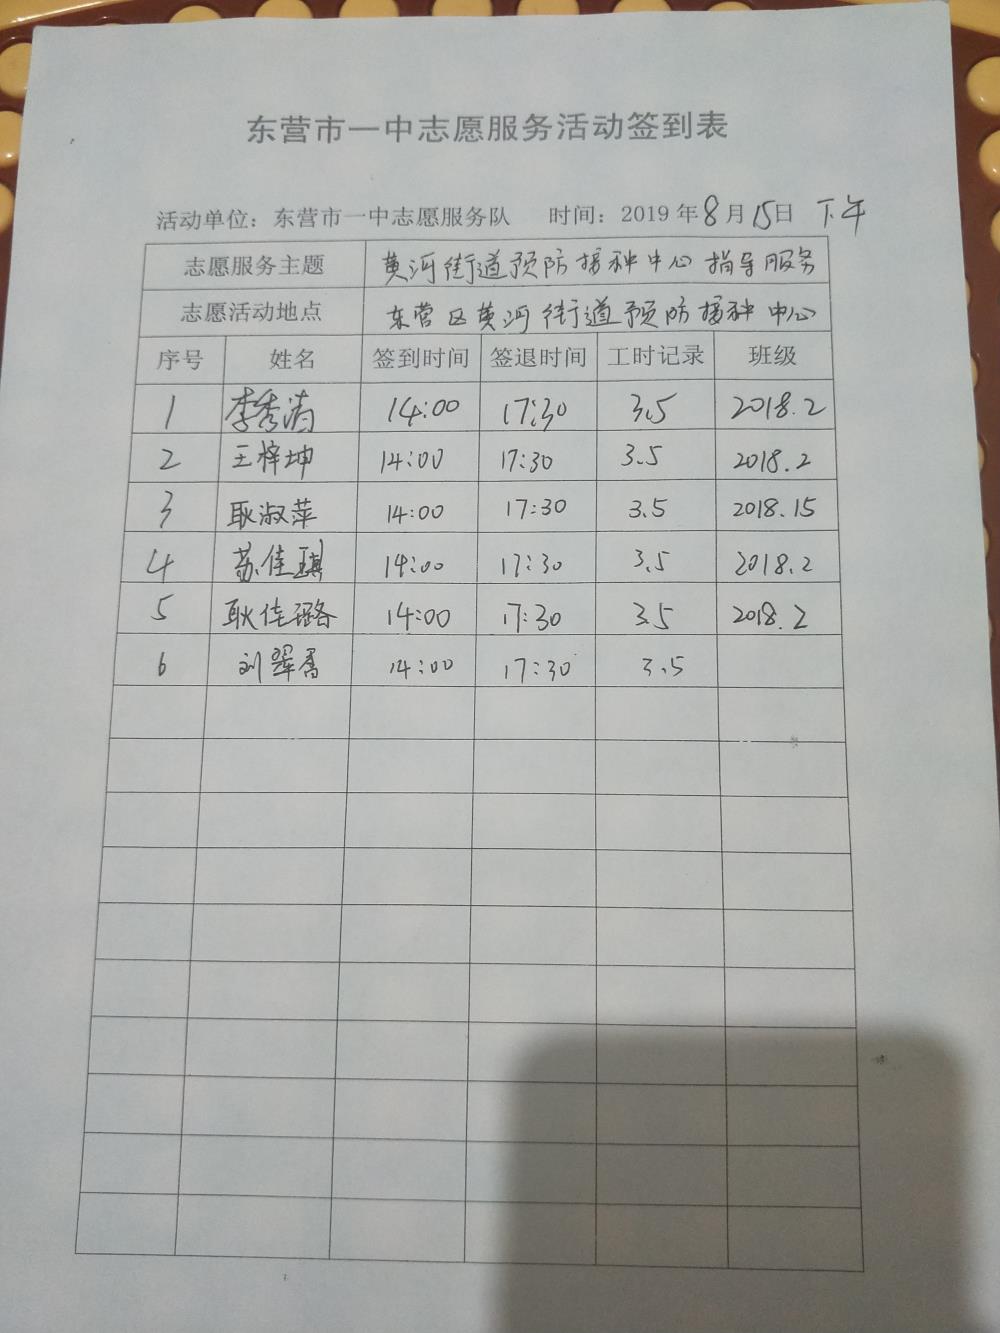 东营市一中志愿服务活动签到表
活动单位：东营市一中志愿服务队 时间：2019年8月15日 下午
志愿服务主题 黄河街道预防接种中心指导服务
志愿活动地点 东营区黄河街道预防接种中心
序号 姓名 签到时间 签退时间 工时记录 班级
1 李秀清 14:00 17:30 3.5 2018.2
2 王梓坤 14:00 17:30 3.5 2018.2
3 耿淑萍 14:00 17:30 3.5 2018.15
4 苏佳琪 14:00 17:30 3.5 2018.2
5 耿佳璐 14:00 17:30 3.5 2018.2
6 刘 14:00 17:30 3.5